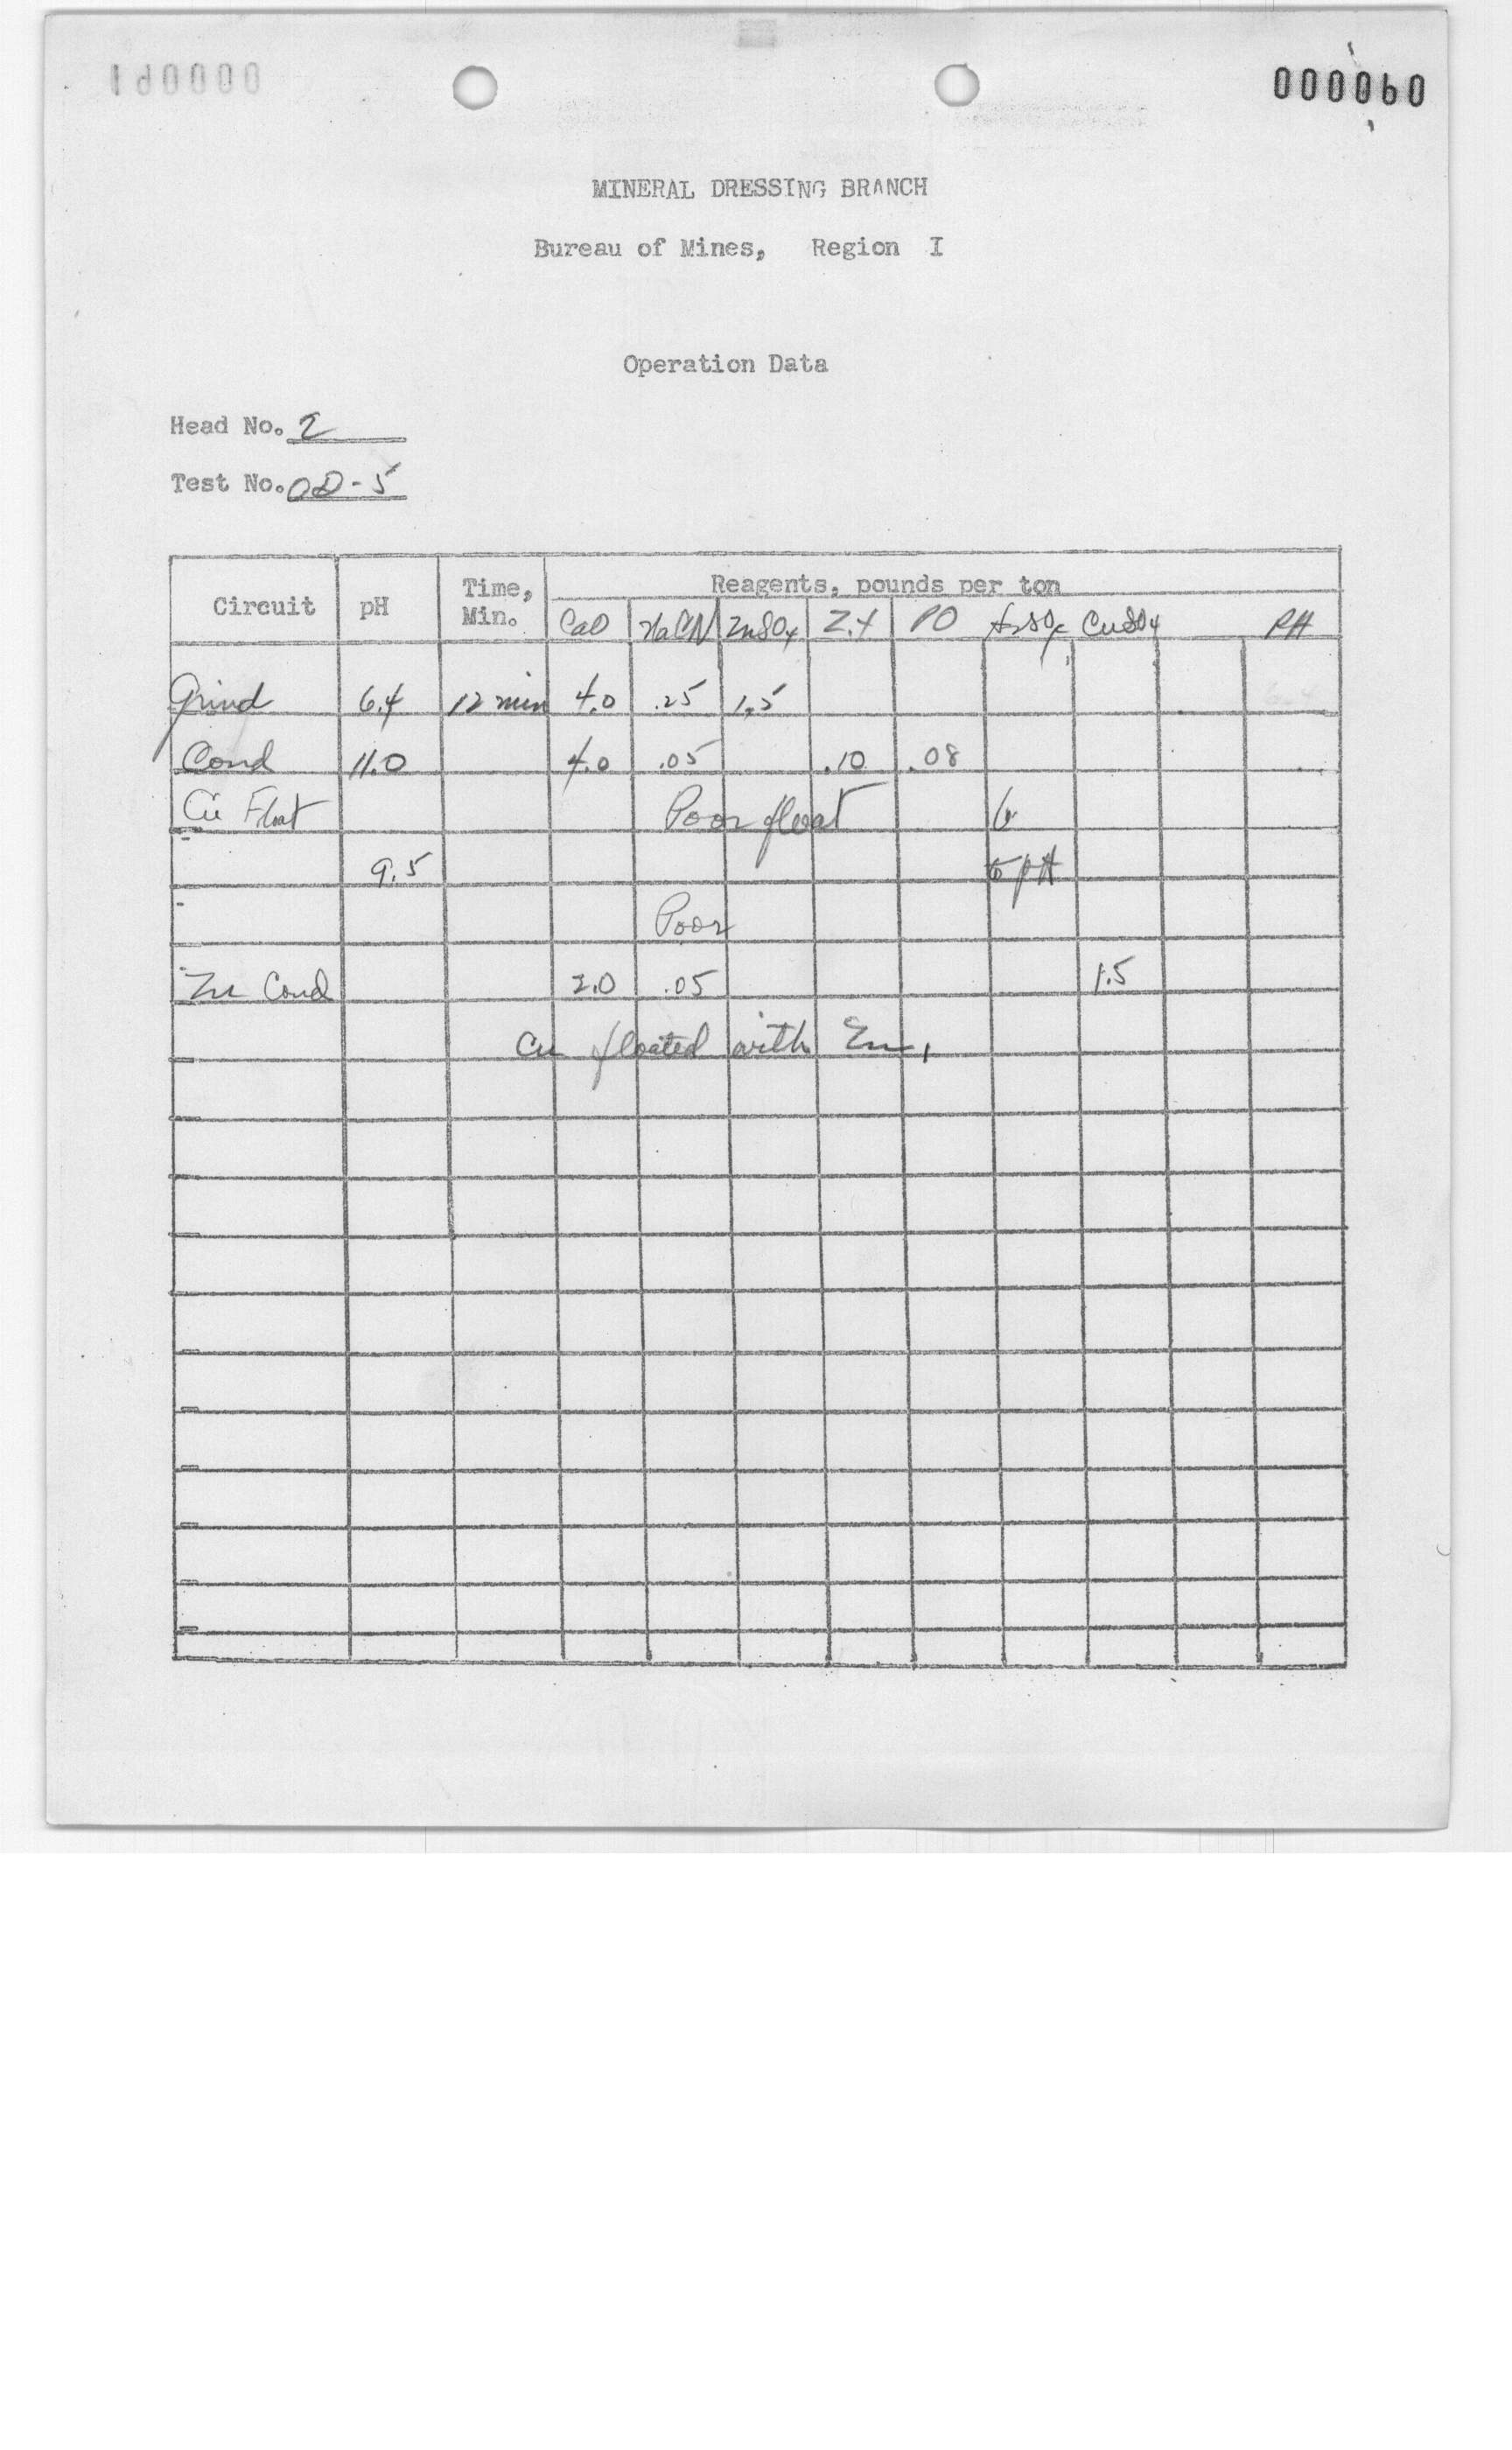 000060
MINERAL DRESSING BRANCH
Bureau of Mines, Region I
Operation Data
Head No. 2
Test No. OD-5
Circuit pH Time, Min. Reagents, pounds per ton
CaO NaCN ZnSO4 Z.4 PO CuSO4 PH
Grind 6.4 12 min 4.0 .25 1.5
Cond 11.0 4.0 .05 .10 .08
Cu Float Poor float
9.5 pH
Poor
Zn Cond 2.0 .05 1.5
Cu floated with Zn,